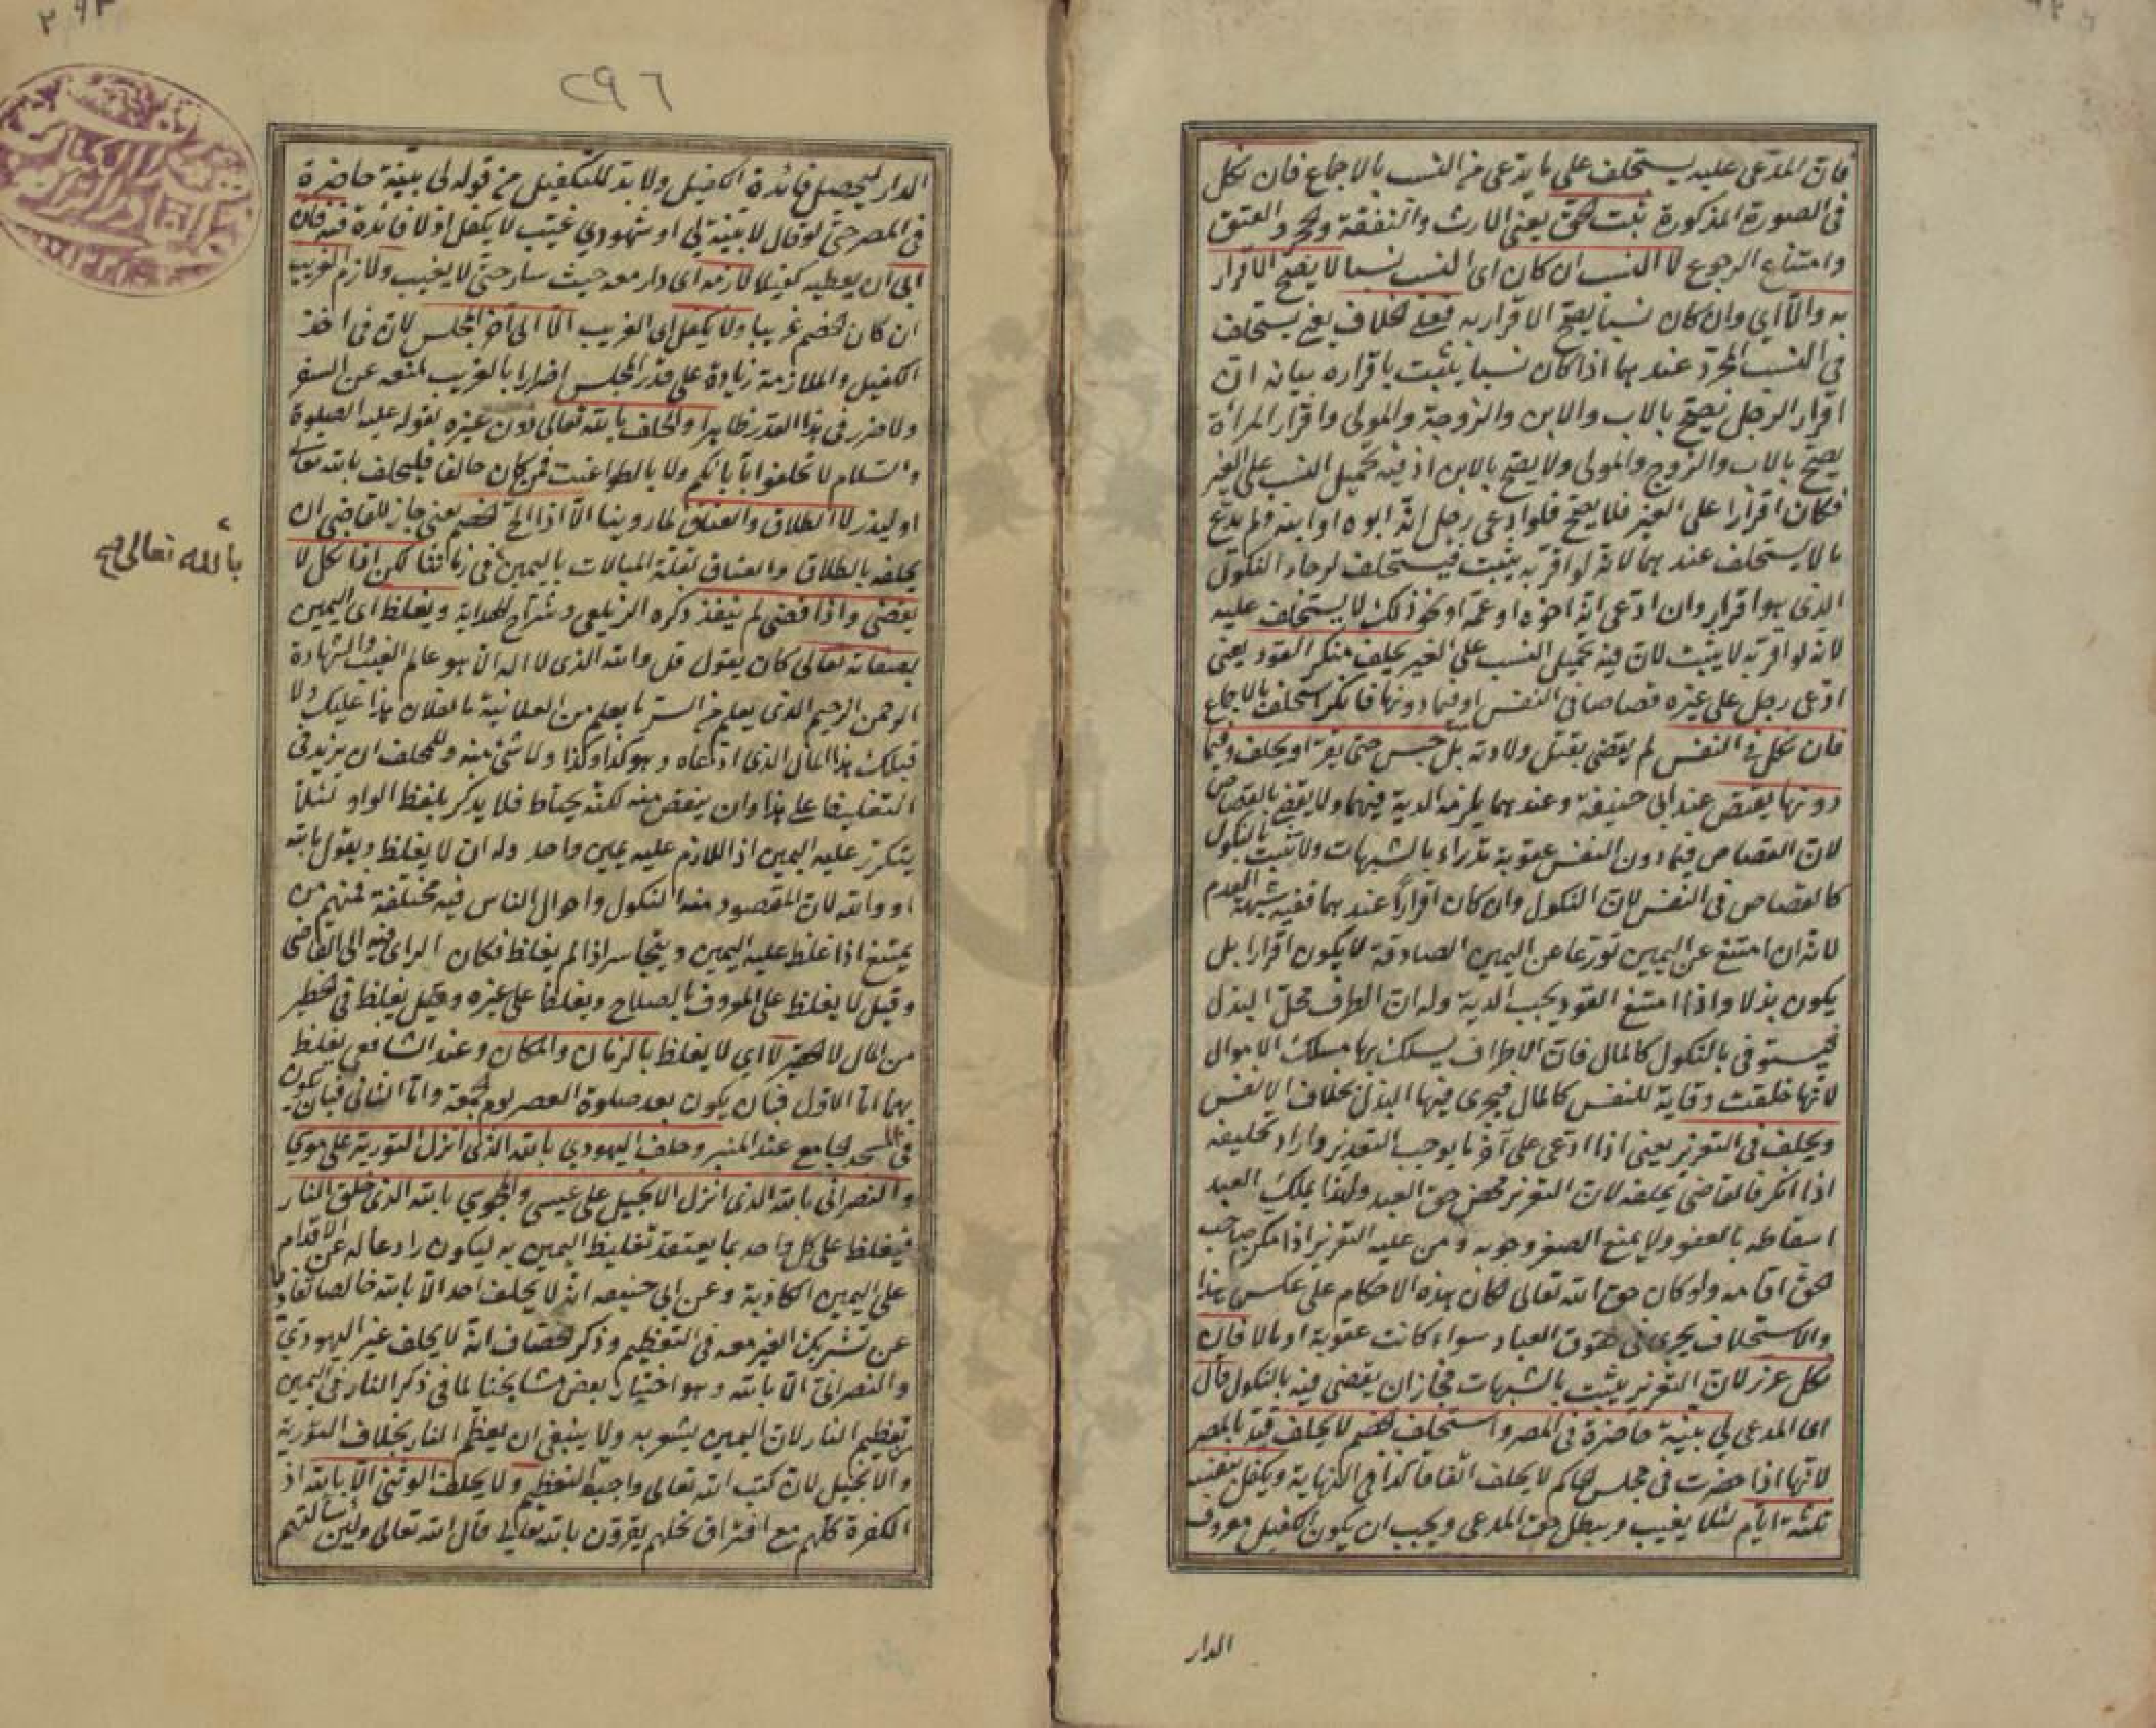 فان المدعى عليه يستحلف على ما يدعى من النسب بالاجماع فان نكل
فى الصورة المذكورة ثبت الحق يعنى الارث والنفقة والحجر والعتق
وامتناع الرجوع لا النسب ان كان اى النسب نسبا لا يصح الاقرار
به والا اي وان كان نسبا يصح الاقرار به فعلى الخلاف يعنى يستحلف
فى النسب المجرد عندهما اذا كان نسبا يثبت باقراره بيانه ان
اقرار الرجل يصح بالاب والابن والزوجة والمولى واقرار المرأة
يصح بالاب والزوج والمولى ولا يصح بالابن اذ فيه تحميل النسب على الغير
فكان اقرارا على الغير فلا يصح فلو ادعى رجل انه ابوه او ابنه ولم يدع
مالا يستحلف عندهما لانه لو اقر به يثبت فيستحلف لرجاء النكول
الذى هو اقرار وان ادعى انه اخوه او عمه او نحو ذلك لا يستحلف عليه
لانه لو اقر به لا يثبت لان فيه تحميل النسب على الغير يحلف منكر القود يعنى
ادعى رجل على غيره قصاصا فى النفس او فيما دونها فانكر استحلف بالاجماع
فان نكل فى النفس لم يقض بقتل ولا دية بل حبس حتى يقر او يحلف وفيما
دونها يقتص عند ابى حنيفة وعندهما يلزمه الدية فيهما ولا يقضى بالقصاص
لان القصاص فيما دون النفس عقوبة تدراء بالشبهات ولا تثبت بالنكول
كالقصاص فى النفس لان النكول وان كان اقراراً عندهما ففيه شبهة العدم
لانه ان امتنع عن اليمين تورعا عن اليمين الصادقة لا يكون اقرارا بل
يكون بذلا واذا امتنع القود يجب الدية وله ان الطرف محل البذل
فيستوفى بالنكول كالمال فان الاطراف يسلك بها مسلك الاموال
لانها خلقت وقاية للنفس كالمال فيجرى فيها البذل بخلاف الانفس
ويحلف فى التعزير يعنى اذا ادعى على آخر ما يوجب التعزير واراد تحليفه
اذا انكر فالقاضى يحلفه لان التعزير محض حق العبد ولهذا يملك العبد
اسقاطه بالعفو ولا يمنع الصغر وجوبه ومن عليه التعزير اذا مكن صاحب
الحق اقامه ولو كان حق الله تعالى لكان هذه الاحكام على عكس هذا
والاستحلاف يجرى فى حقوق العباد سواء كانت عقوبة او مالا فان
نكل عزر لان التعزير يثبت بالشبهات فجاز ان يقضى فيه بالنكول قال
اى المدعى لى بينة حاضرة فى المصر واستحلف الخصم لا يحلف قيد بالمصر
لانها اذا حضرت فى مجلس الحاكم لا يحلف اتفاقا كذا فى النهاية ويكفل بنفسه
ثلثة ايام لئلا يغيب ويبطل حق المدعى ويجب ان يكون الكفيل معروف
الدار
٢٩٦
الدار ليحصل فائدة الكفيل ولا بد للتكفيل من قوله لى بينة حاضرة
فى المصر حتى لو قال لا بينة لي او شهودي غيب لا يكفل اذ لا فائدة فيه فان
ابى ان يعطيه كفيلا لازمه اى دار معه حيث سار حتى لا يغيب ولازم الغريب
ان كان الخصم غريبا ولا يكفل اى الغريب الا الى آخر المجلس لان فى اخذ
الكفيل والملازمة زيادة على قدر المجلس اضرارا بالغريب لمنعه عن السفر
ولا ضرر فى هذا القدر ظاهرا والحلف بالله تعالى دون غيره لقوله عليه الصلوة
والسلام لا تحلفوا بآبائكم ولا بالطواغيت فمن كان حالفا فليحلف بالله تعالى
او ليذر لا الطلاق والعتاق لما روينا الا اذا الح الخصم يعنى جاز للقاضى ان
بالله تعالى صح
يحلفه بالطلاق والعتاق لقلة المبالات باليمين فى زماننا لكن اذا نكل لا
يقضى واذا قضى لم ينفذ ذكره الزيلعى وشراح الهداية ويغلظ اى اليمين
بصفاته تعالى كان يقول قل والله الذى لا اله الا هو عالم الغيب والشهادة
الرحمن الرحيم الذى يعلم من السر ما يعلم من العلانية ما لفلان هذا عليك ولا
قبلك هذا المال الذى ادعاه وهو كذا وكذا ولا شئ منه وللمحلف ان يزيد فى
التغليظ على هذا وان ينقص منه لكنه يحتاط فلا يذكر بلفظ الواو لئلا
يتكرر عليه اليمين اذ اللازم عليه يمين واحد وله ان لا يغلظ ويقول بالله
او والله لان المقصود منه النكول واحوال الناس فيه مختلفة فمنهم من
يمتنع اذا غلظ عليه اليمين ويتجاسر اذا لم يغلظ فكان الراى فيه الى القاضى
وقيل لا يغلظ على المعروف بالصلاح ويغلظ على غيره وقيل يغلظ فى الخطير
من المال لا الحقير لا اي لا يغلظ بالزمان والمكان وعند الشافعى يغلظ
بهما اما الاول فبان يكون بعد صلوة العصر يوم الجمعة واما الثانى فبان يكون
فى المسجد الجامع عند المنبر وحلف اليهودي بالله الذى انزل التورية على موسي
والنصرانى بالله الذى انزل الانجيل على عيسى والمجوسي بالله الذى خلق النار
فيغلظ على كل واحد بما يعتقد تغليظ اليمين به ليكون رادعا له عن الاقدام
على اليمين الكاذبة وعن ابى حنيفه انه لا يحلف احد الا بالله خالصا تفاديا
عن تشريك الغير معه فى التعظيم وذكر الخصاف انه لا يحلف غير اليهودي
والنصرانى الا بالله وهو اختيار بعض مشايخنا لما فى ذكر النار فى اليمين
من تعظيم النار لان اليمين يشعر به ولا ينبغى ان يعظم النار بخلاف التورية
والانجيل لان كتب الله تعالى واجبة التعظيم ولا يحلف الوثنى الا بالله اذ
الكفرة كلهم مع افتراق نحلهم يقرون بالله تعالى قال الله تعالى ولئن سألتهم